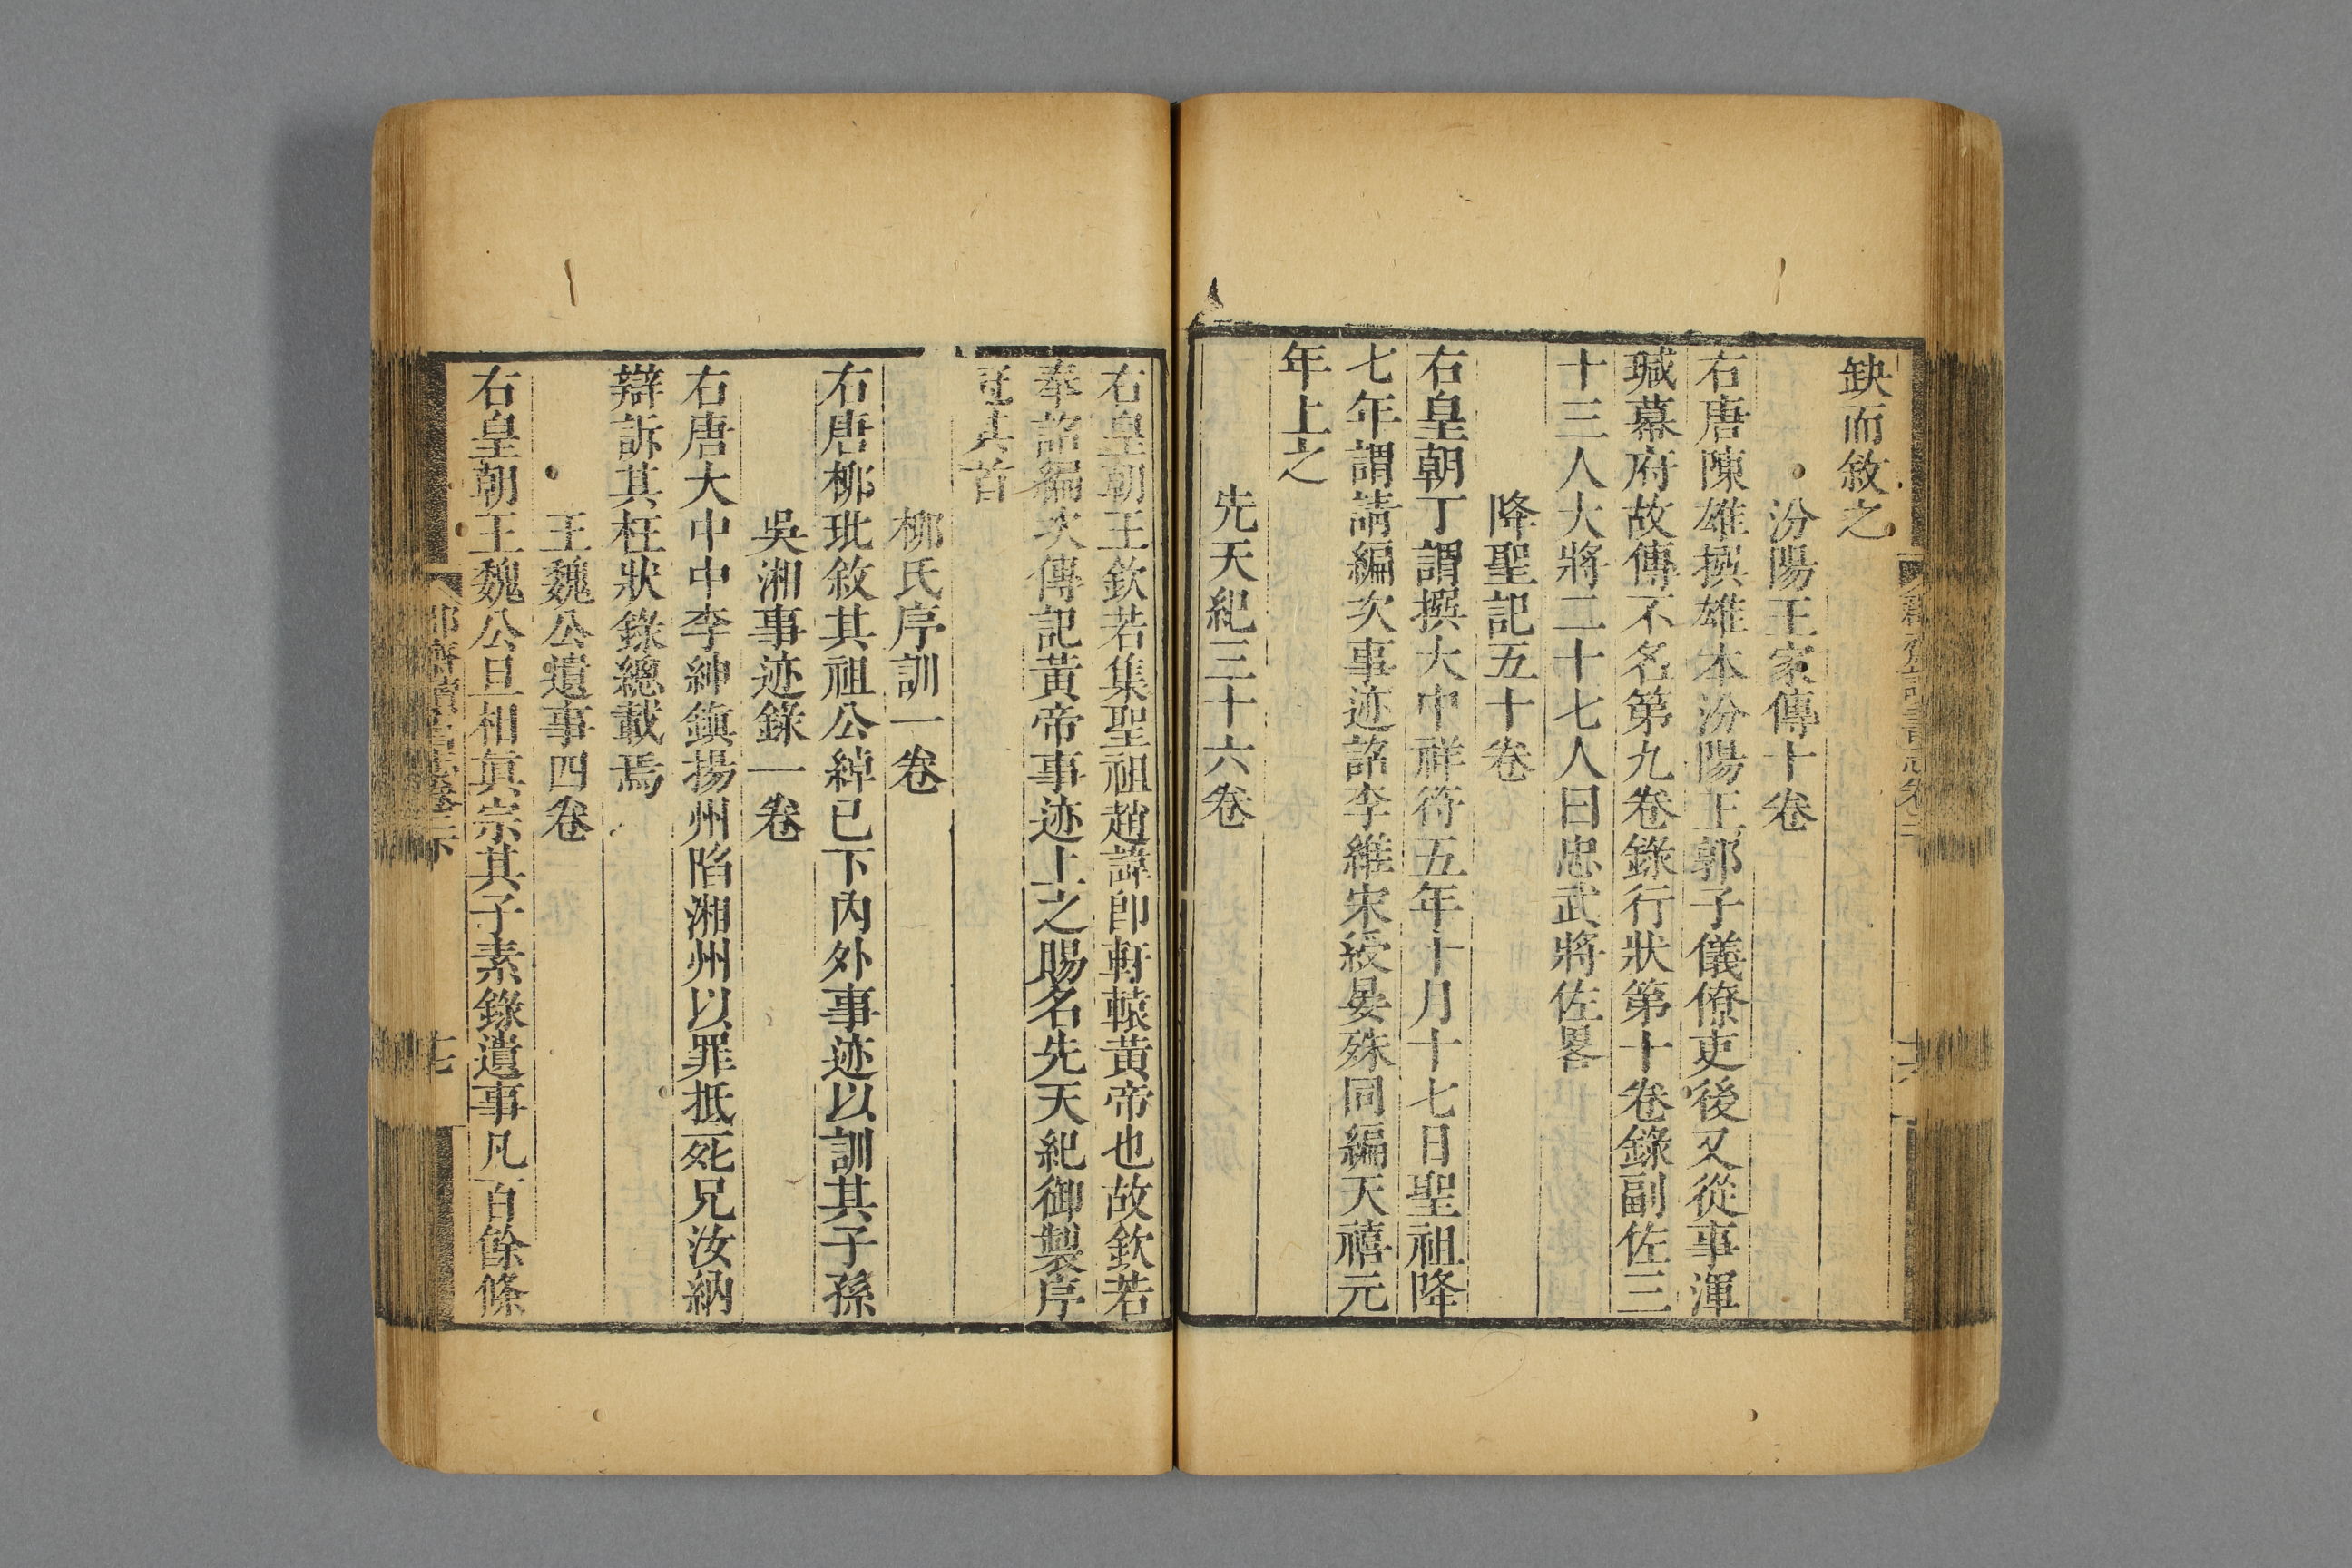 缺而敘之
汾陽王家傳十卷
右唐陳雄撰雄本汾陽王郭子儀僚吏後又從事渾
瑊幕府故傳不名第九卷錄行狀第十卷錄副佐三
十三人大將二十七人曰忠武將佐畧
降聖記五十卷
右皇朝丁謂撰大中祥符五年十月十七日聖祖降
七年謂請編次事迹詔李維宋綬晏殊同編天禧元
年上之
先天紀三十六卷
右皇朝王欽若集聖祖趙諱即軒轅黃帝也故欽若
奉詔編次傳記黃帝事迹上之賜名先天紀御製序
冠其首
柳氏序訓一卷
右唐柳玭敘其祖公綽已下內外事迹以訓其子孫
吳湘事迹錄一卷
右唐大中中李紳鎮揚州陷湘州以罪抵死兄汝納
辯訴其枉狀錄總載焉
王魏公遺事四卷
右皇朝王魏公旦相真宗其子素錄遺事凡百餘條